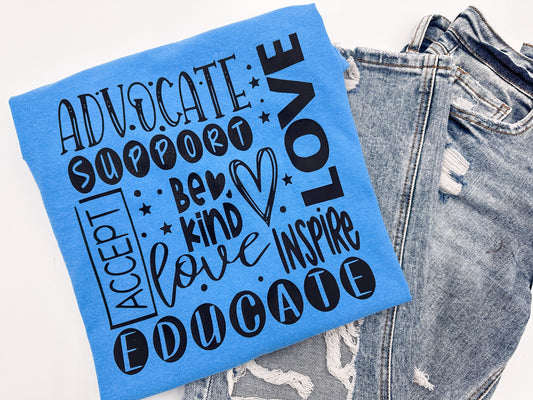 ADVOCATE
SUPPORT
LOVE
ACCEPT
Be
KIND
love
INSPIRe
EDUCATE